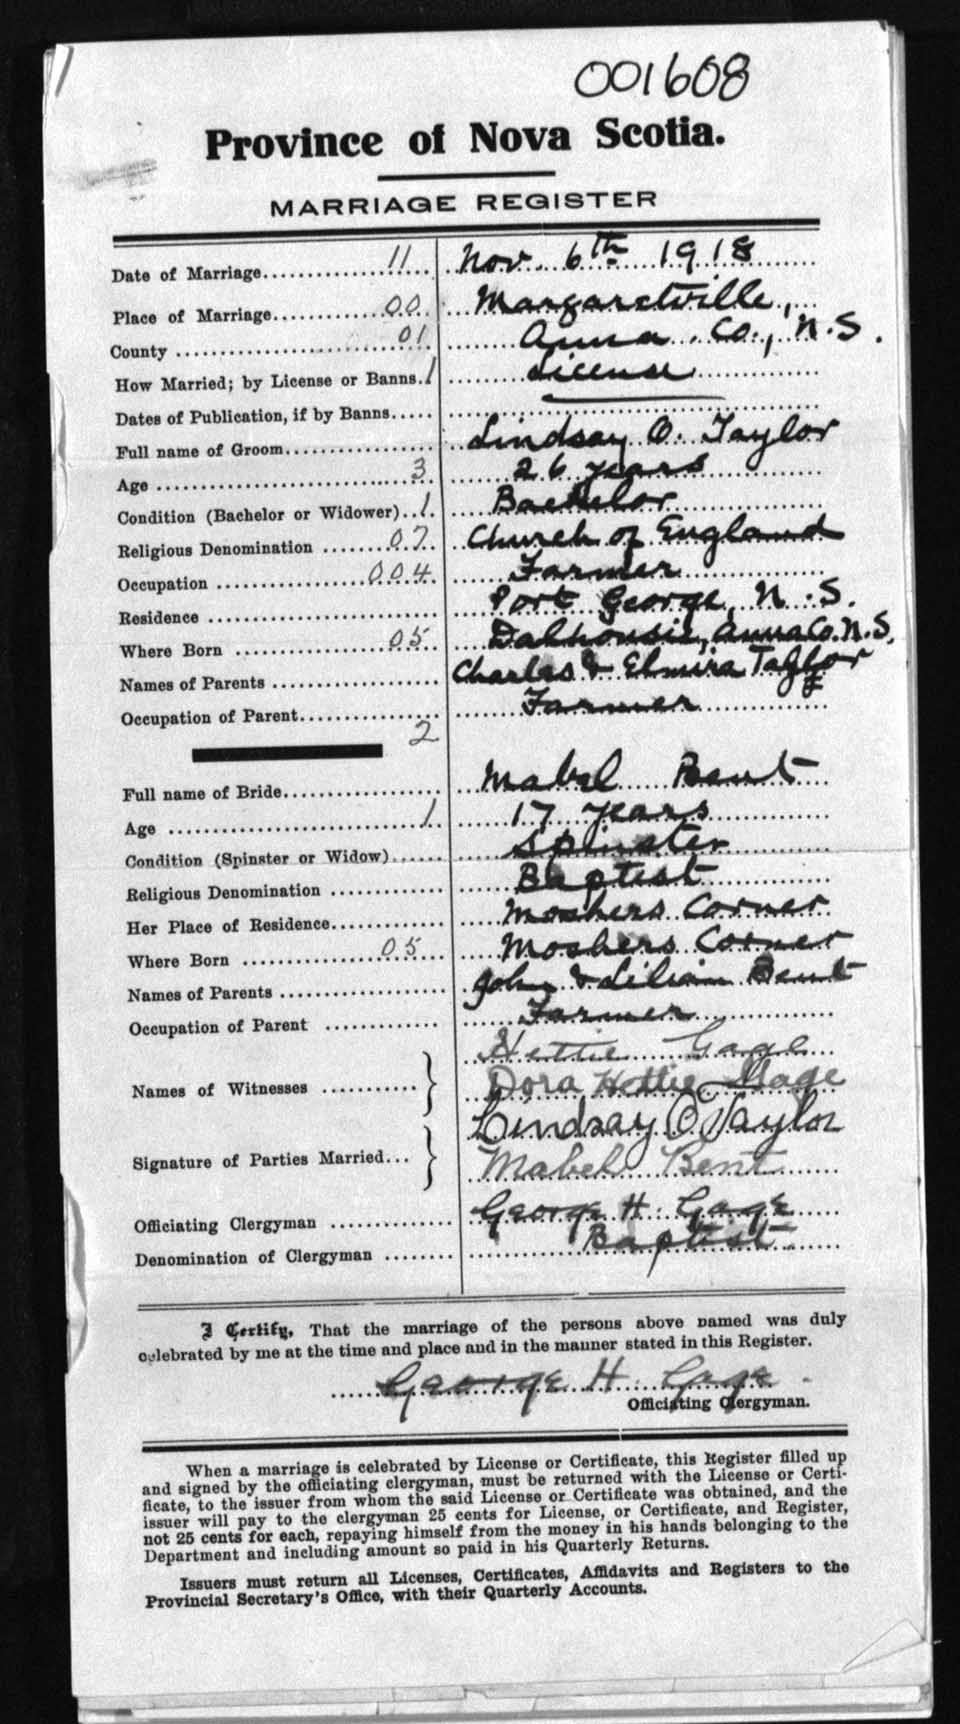 001608
Province of Nova Scotia.
MARRIAGE REGISTER
Date of Marriage 11 Nov. 6th 1918
Place of Marriage 00 Margaretville,
County 01 Anna Co., N.S.
How Married; by License or Banns. 1 License
Dates of Publication, if by Banns
Full name of Groom Lindsay O. Taylor
Age 3 26 years
Condition (Bachelor or Widower) 1 Bachelor
Religious Denomination 07 Church of England
Occupation 004 Farmer
Residence Port George, N.S.
Where Born 05 Dalhousie, Anna Co. N.S.
Names of Parents Charles & Elmira Taylor
Occupation of Parent Farmer
2
Full name of Bride Mabel Bent
Age 1 17 years
Condition (Spinster or Widow) Spinster
Religious Denomination Baptist
Her Place of Residence Moshers Corner
Where Born 05 Moshers Corner
Names of Parents John & Lilian Bent
Occupation of Parent Farmer
Hettie Gage
Names of Witnesses Dora Hettie Gage
Lindsay O Taylor
Signature of Parties Married Mabel Bent
Officiating Clergyman George H. Gage
Denomination of Clergyman Baptist
I Certify, That the marriage of the persons above named was duly
celebrated by me at the time and place and in the manner stated in this Register.
George H. Gage.
Officiating Clergyman.
When a marriage is celebrated by License or Certificate, this Register filled up
and signed by the officiating clergyman, must be returned with the License or Certi-
ficate, to the issuer from whom the said License or Certificate was obtained, and the
issuer will pay to the clergyman 25 cents for License, or Certificate, and Register,
not 25 cents for each, repaying himself from the money in his hands belonging to the
Department and including amount so paid in his Quarterly Returns.
Issuers must return all Licenses, Certificates, Affidavits and Registers to the
Provincial Secretary's Office, with their Quarterly Accounts.